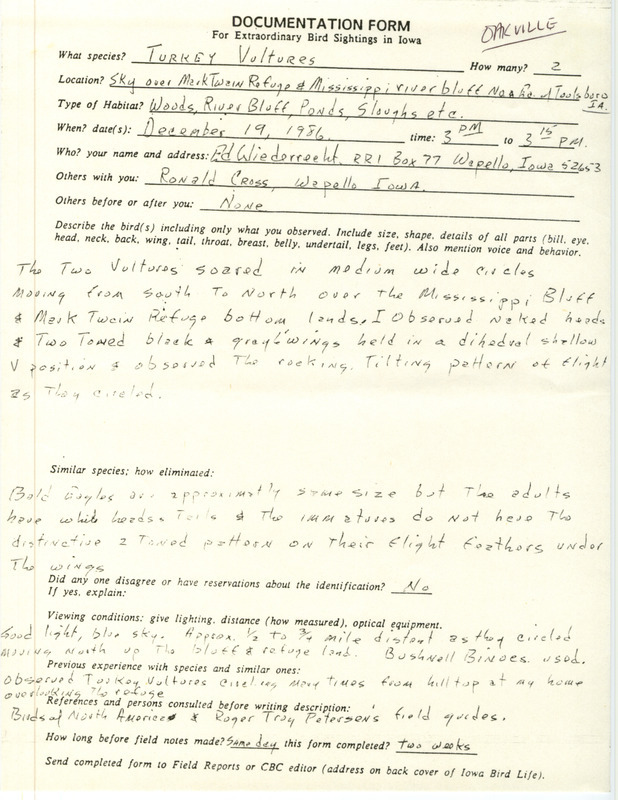 DOCUMENTATION FORM
For Extraordinary Bird Sightings in Iowa
OAKVILLE
What species? Turkey Vultures How many? 2
Location? Sky over Mark Twain Refuge & Mississippi river bluff No & Ea. of Toolsboro IA.
Type of Habitat? Woods, River Bluff, Ponds, Sloughs etc.
When? date(s): December 19, 1986 time: 3 PM to 3 15 PM.
Who? your name and address: Ed Wiederrecht RR1 Box 77 Wapello, Iowa 52653
Others with you: Ronald Cross, Wapello Iowa.
Others before or after you: None
Describe the bird(s) including only what you observed. Include size, shape, details of all parts (bill, eye,
head, neck, back, wing, tail, throat, breast, belly, undertail, legs, feet). Also mention voice and behavior.
The Two Vultures soared in medium wide circles
moving from south To North over The Mississippi Bluff
& Mark Twain Refuge bottom lands. I Observed Naked heads
& Two Toned black & gray wings held in a dihedral shallow
V position & observed The rocking, Tilting pattern of flight
as They circled.
Similar species; how eliminated:
Bald Eagles are approximatly same size but The adults
have white heads & Tails & The immatures do not have The
distinctive 2 Toned pattern on Their flight feathers under
The wings
Did any one disagree or have reservations about the identification? No
If yes, explain:
Viewing conditions: give lighting, distance (how measured), optical equipment.
Good light, blue sky. Approx. 1/2 to 3/4 mile distant as they circled
moving North up The bluff & refuge land. Bushnell Binocs. used.
Previous experience with species and similar ones:
observed Turkey Vultures circling many times from hilltop at my home
overlooking The refuge
References and persons consulted before writing description:
Birds of North America & Roger Troy Peterson's field guides.
How long before field notes made? Same day this form completed? Two weeks
Send completed form to Field Reports or CBC editor (address on back cover of Iowa Bird Life).